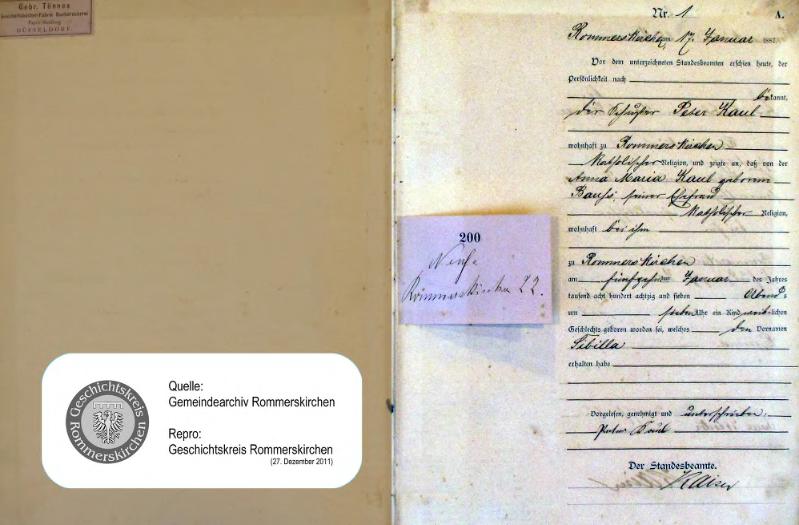 Gebr. Tönnes
Papier-Handlung
DÜSSELDORF.
Geschichtskreis
Rommerskirchen
Quelle:
Gemeindearchiv Rommerskirchen
Repro:
Geschichtskreis Rommerskirchen
(27. Dezember 2011)
200
Rommerskirchen 22.
Nr. 1
A.
Rommerskirchen am 17. Januar 188
Vor dem unterzeichneten Standesbeamten erschien heute, der
Persönlichkeit nach
bekannt,
der Peter Kaul
wohnhaft zu Rommerskirchen
katholischer Religion, und zeigte an, daß von der
Anna Maria Kaul geborenen
seiner Ehefrau
katholischer Religion,
wohnhaft bei ihm
zu Rommerskirchen
am fünfzehnten Januar des Jahres
tausend acht hundert achtzig und sieben Abends
um sieben Uhr ein Kind weiblichen
Geschlechts geboren worden sei, welches den Vornamen
Sibilla
erhalten habe
Vorgelesen, genehmigt und unterschrieben
Peter Kaul
Der Standesbeamte.
Kaiser